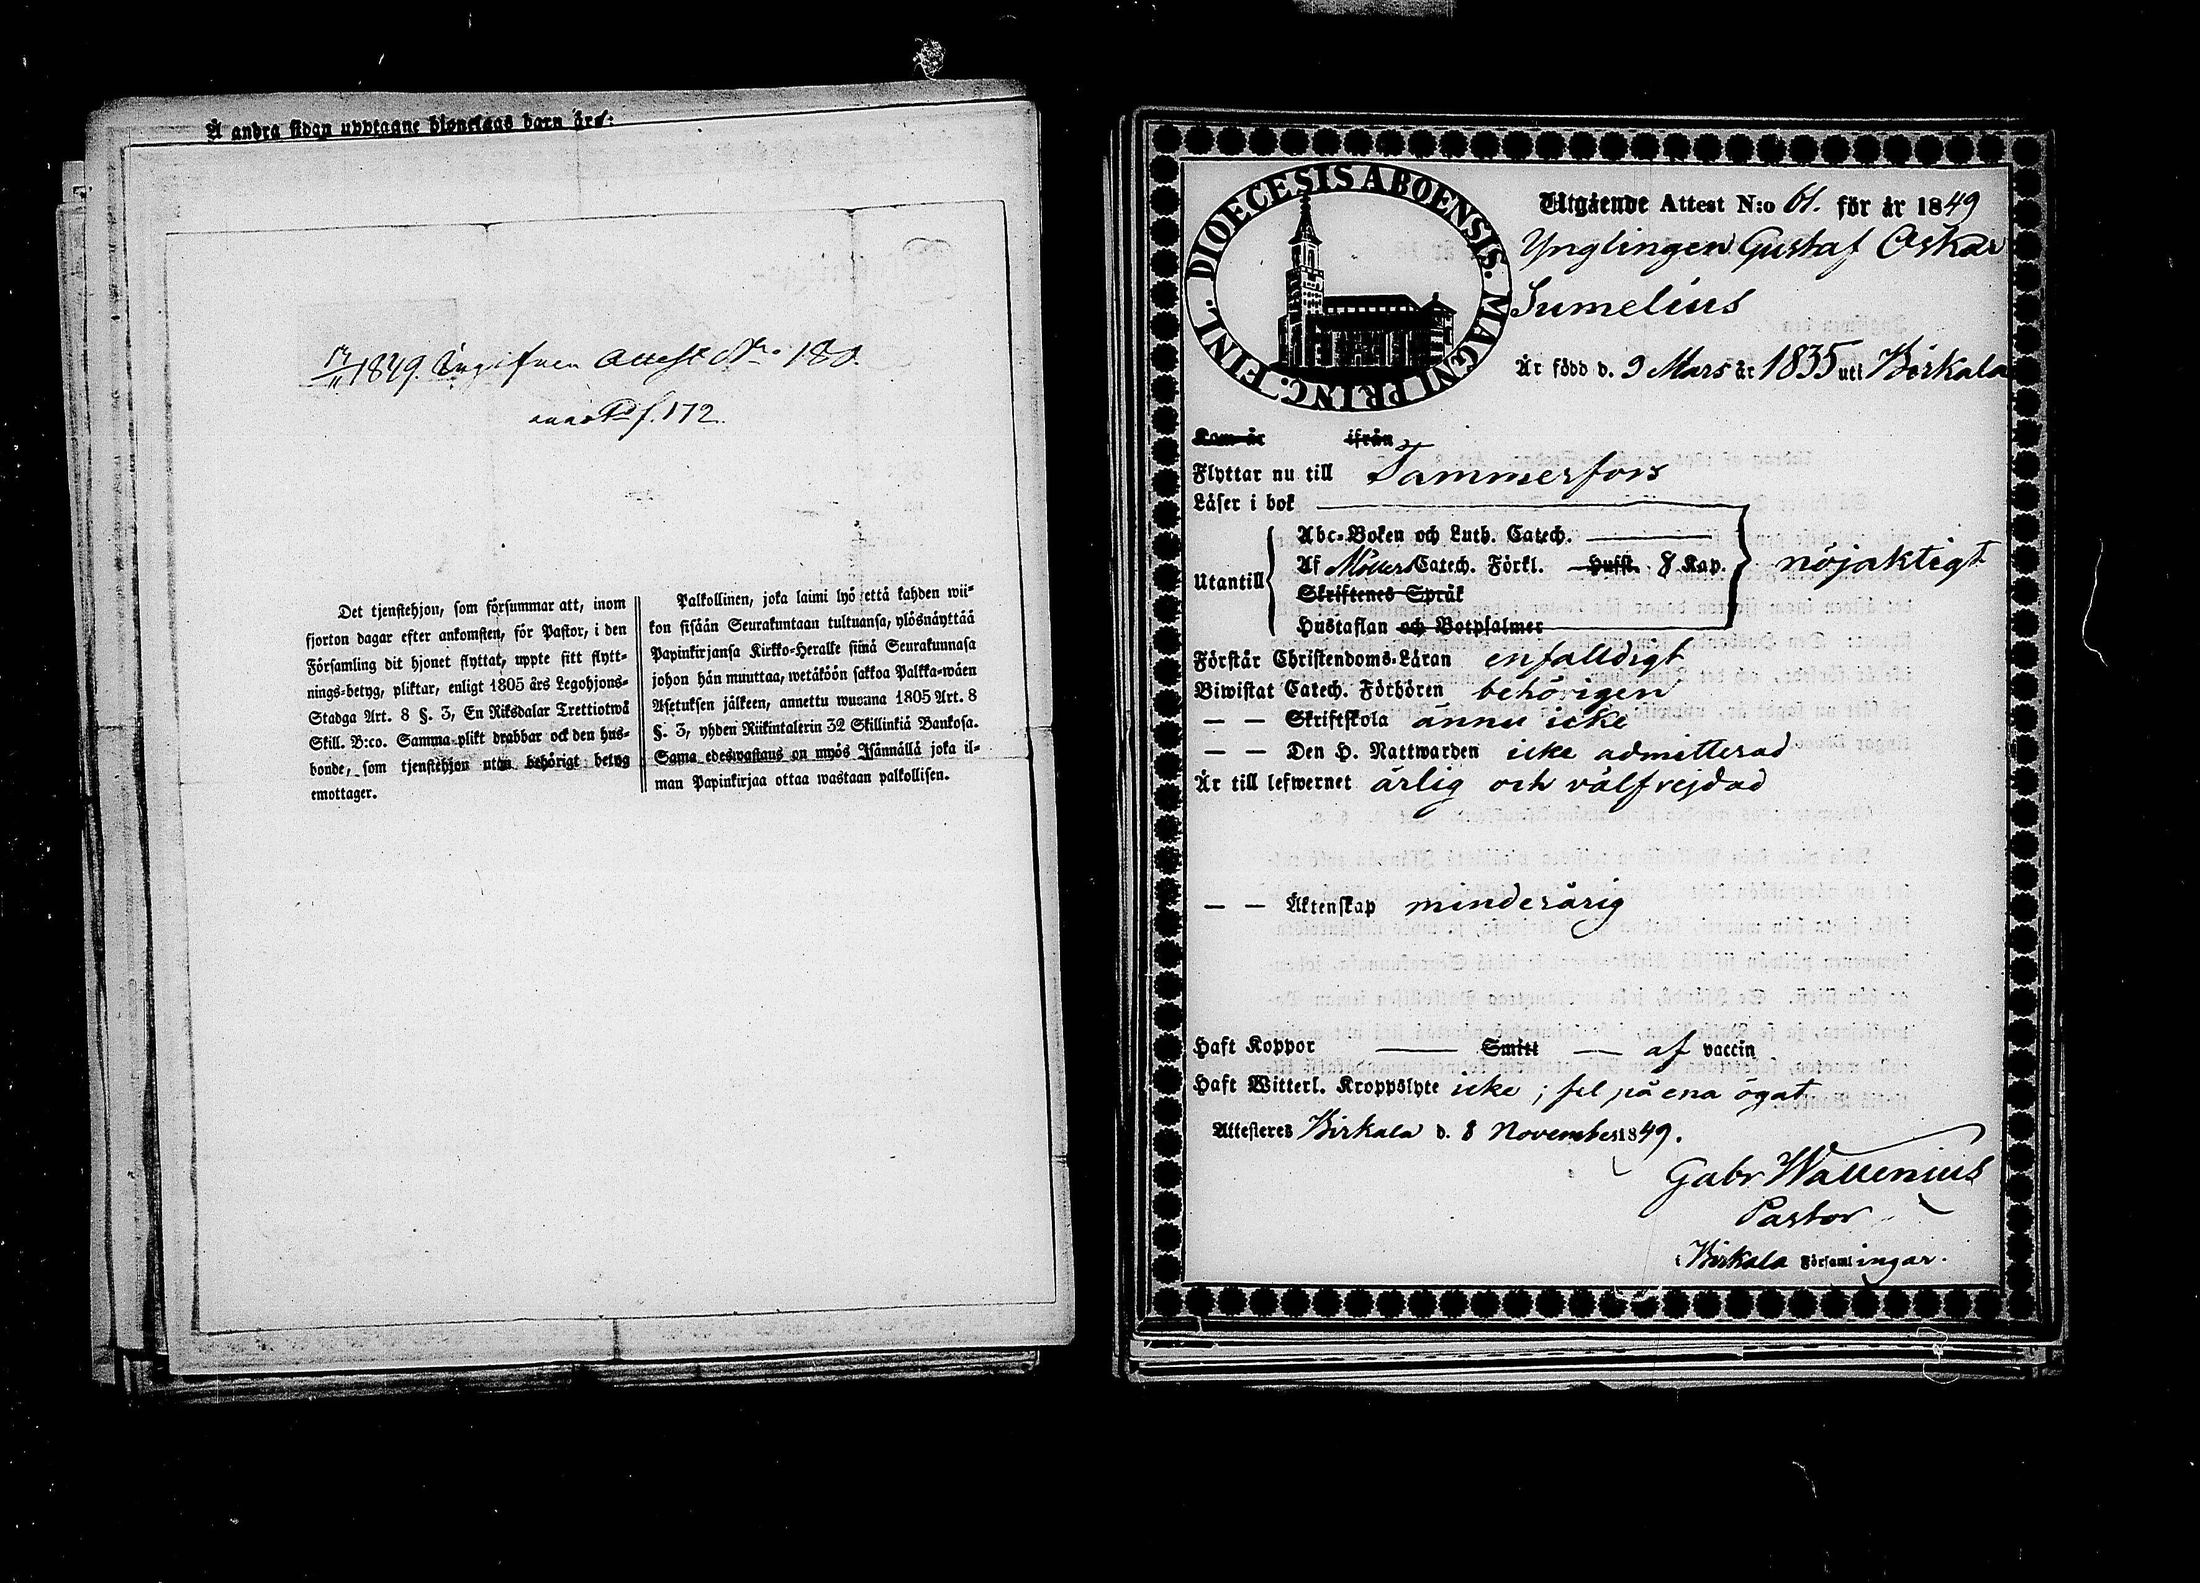 Å andra sidan upptagne hjonelags barn äro:
17/11 1849. Ingifven Attest No 180.
annot. f. 172.
Det tjenstehjon, som försummar att, inom
fjorton dagar efter ankomsten, för Pastor, i den
Församling dit hjonet flyttat, uppte sitt flytt-
nings-betyg, pliktar, enligt 1805 års Legohjons-
Stadga Art. 8 §. 3, En Riksdalar Trettiotwå
Skill. B:co. Samma plikt drabbar ock den hus-
bonde, som tjenstehjon utan behörigt betyg
emottager.
Palkollinen, joka laimi lyö että kahden wii-
kon sisään Seurakuntaan tultuansa, ylösnäyttää
Papinkirjansa Kirkko-Heralle siinä Seurakunnasa
johon hän muuttaa, wetäköön sakkoa Palkka-wäen
Asetuksen jälkeen, annettu wuonna 1805 Art. 8
§. 3, yhden Riikintalerin 32 Skillinkiä Bankosa.
Sama edeswastaus on myös Isännällä joka il-
man Papinkirjaa ottaa wastaan palkollisen.
FINL. DIOECESIS ABOENSIS. MAGNI PRINC.
Utgående Attest N:o 61. för år 1849
Ynglingen Gustaf Oskar
Sumelius
Är född d. 9 Mars år 1835 uti Birkala
Kom år ifrån
Flyttar nu till Tammerfors
Läser i bok
Utantill
Abc-Boken och Luth. Catech.
Af Möllers Catech. Förkl. Hufst. 8 Kap.
Skriftenes Språk
Hustaflan och Botpsalmer
nöjaktigt
Förstår Christendoms-Läran enfalldigt
Biwistat Catech. Förhören behörigen
— — Skriftskola ännu icke
— — Den H. Nattwarden icke admitterad
Är till lefwernet ärlig och välfrejdad
— — Äktenskap minderårig
Haft Koppor — Smitt — af vaccin
Haft Witterl. Kroppslyte icke; fel på ena ögat
Attesteres Birkala d. 8 November 1849.
Gabr Wallenius
Pastor
i Birkala Församlingar.